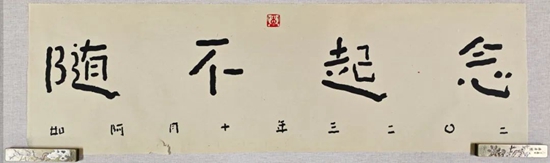 念起不随
二〇二三年十月阿如